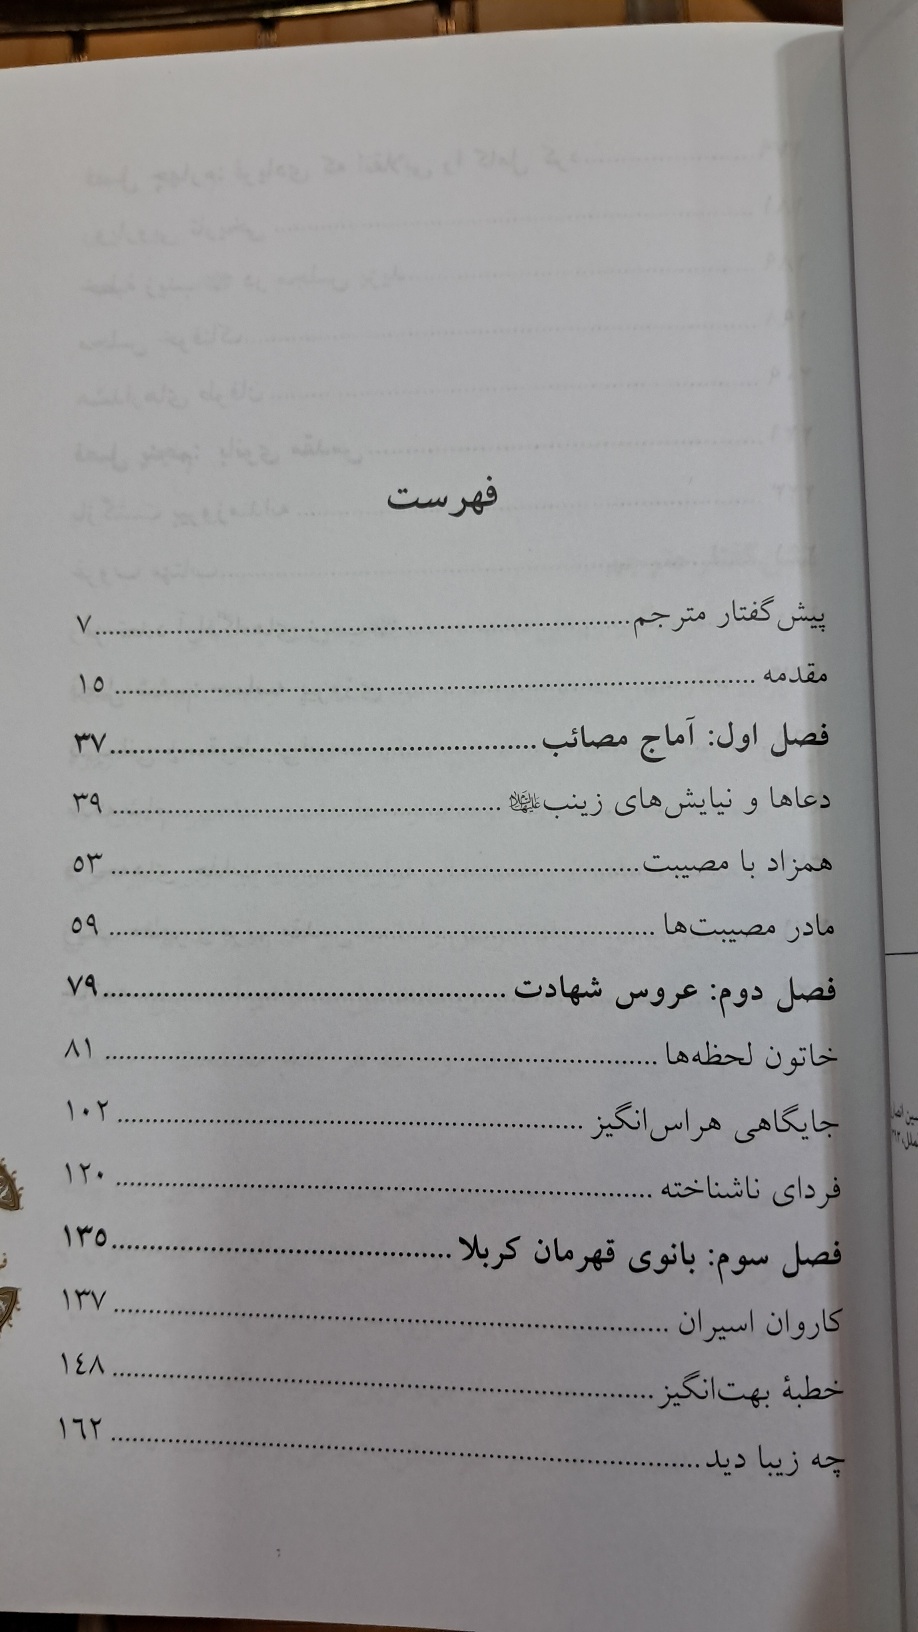 فهرست
پیش‌گفتار مترجم ۷
مقدمه ۱۵
فصل اول: آماج مصائب ۳۷
دعاها و نیایش‌های زینب علیهاالسلام ۳۹
همزاد با مصیبت ۵۳
مادر مصیبت‌ها ۵۹
فصل دوم: عروس شهادت ۷۹
خاتون لحظه‌ها ۸۱
جایگاهی هراس‌انگیز ۱۰۲
فردای ناشناخته ۱۲۰
فصل سوم: بانوی قهرمان کربلا ۱۳۵
کاروان اسیران ۱۳۷
خطبهٔ بهت‌انگیز ۱٤۸
چه زیبا دید ۱٦۲